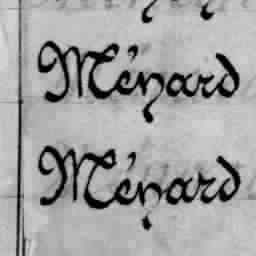 Ménard
Ménard